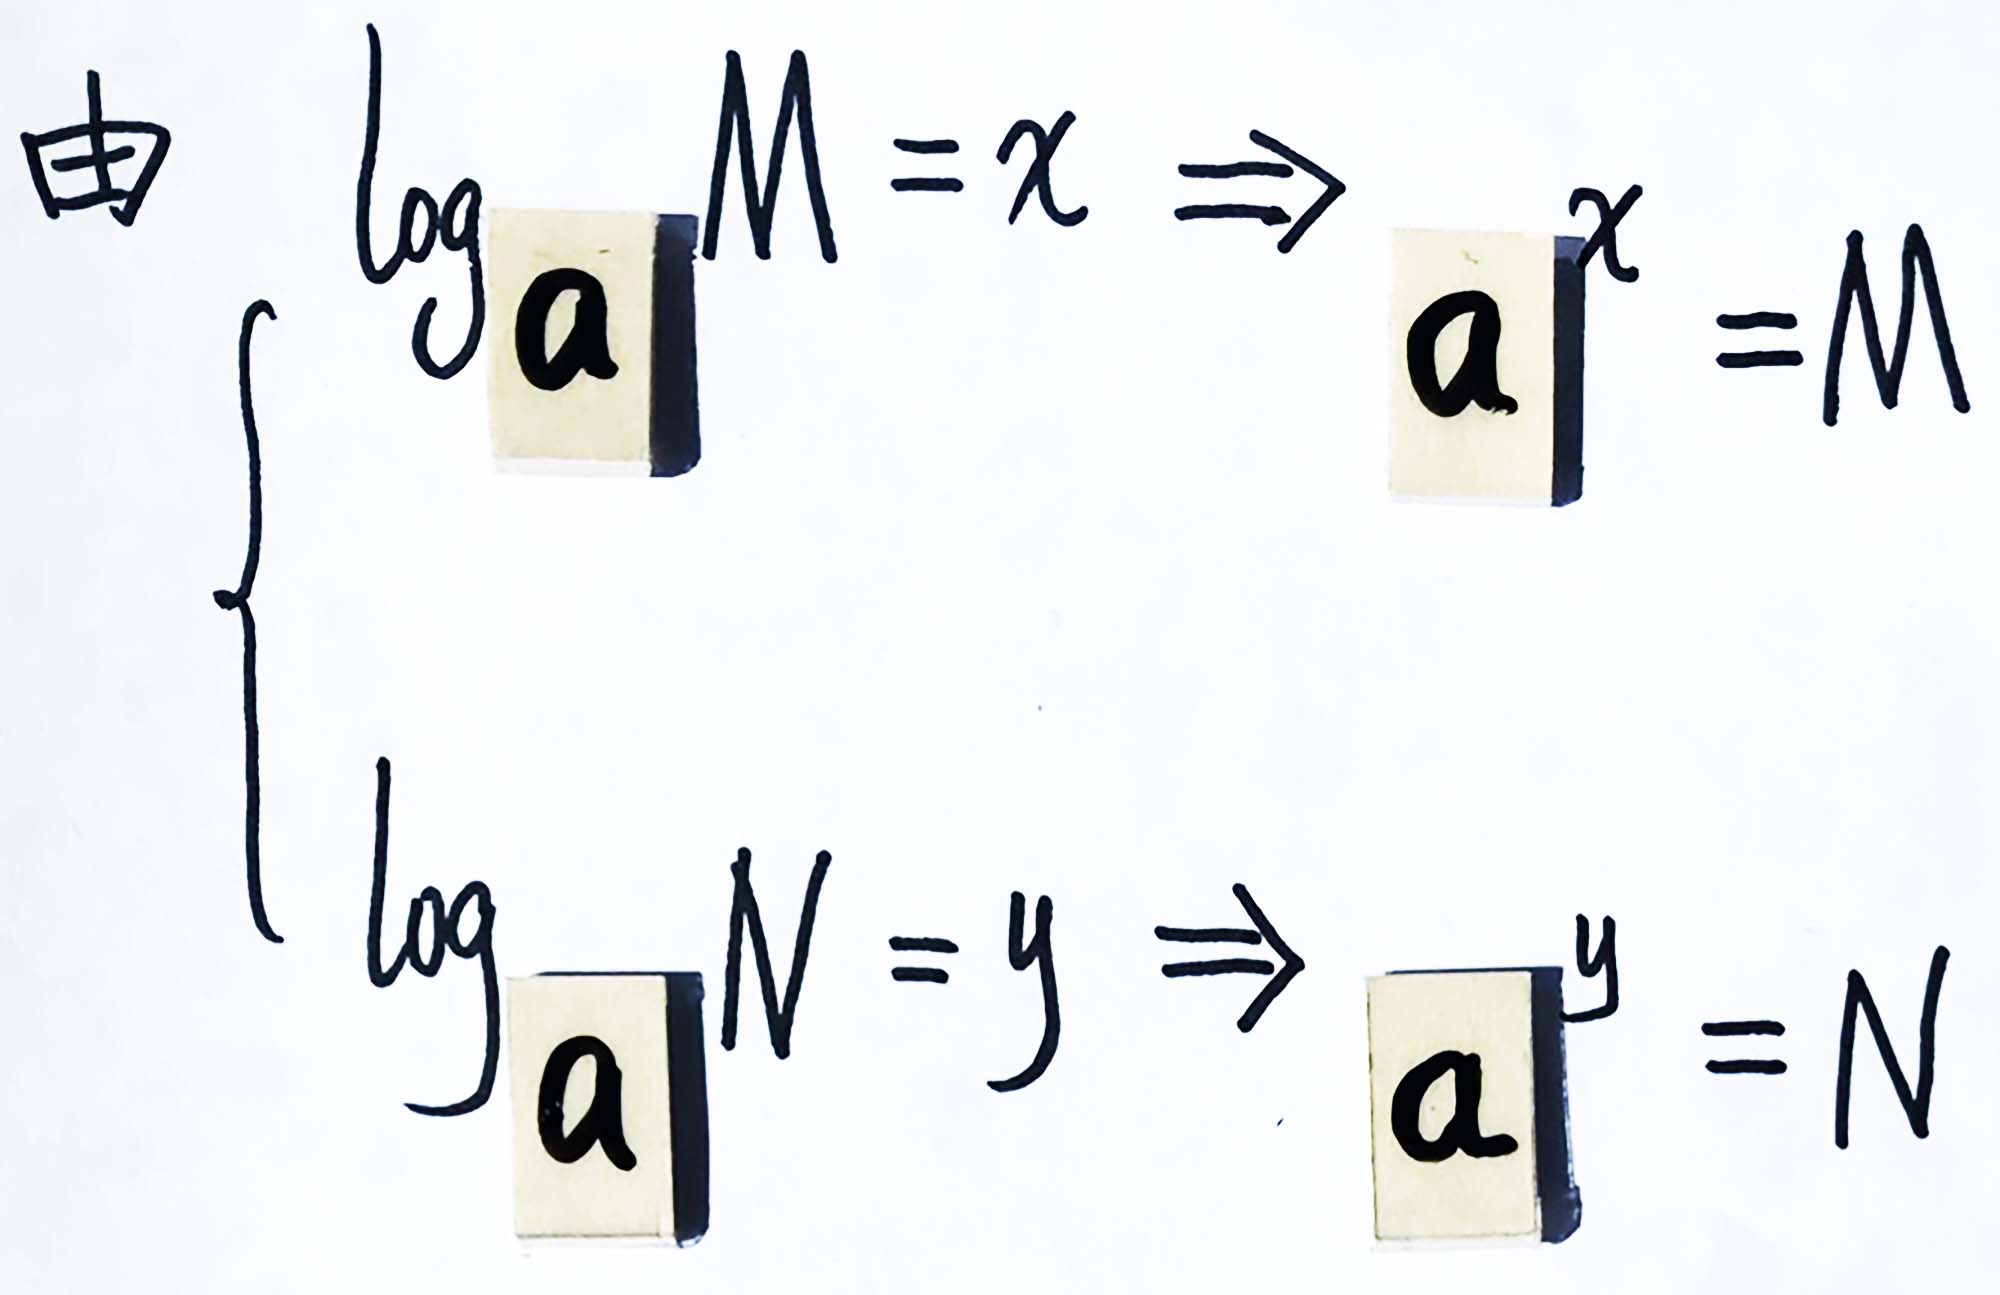 由 logₐM = x ⇒ aˣ = M
{
logₐN = y ⇒ aʸ = N